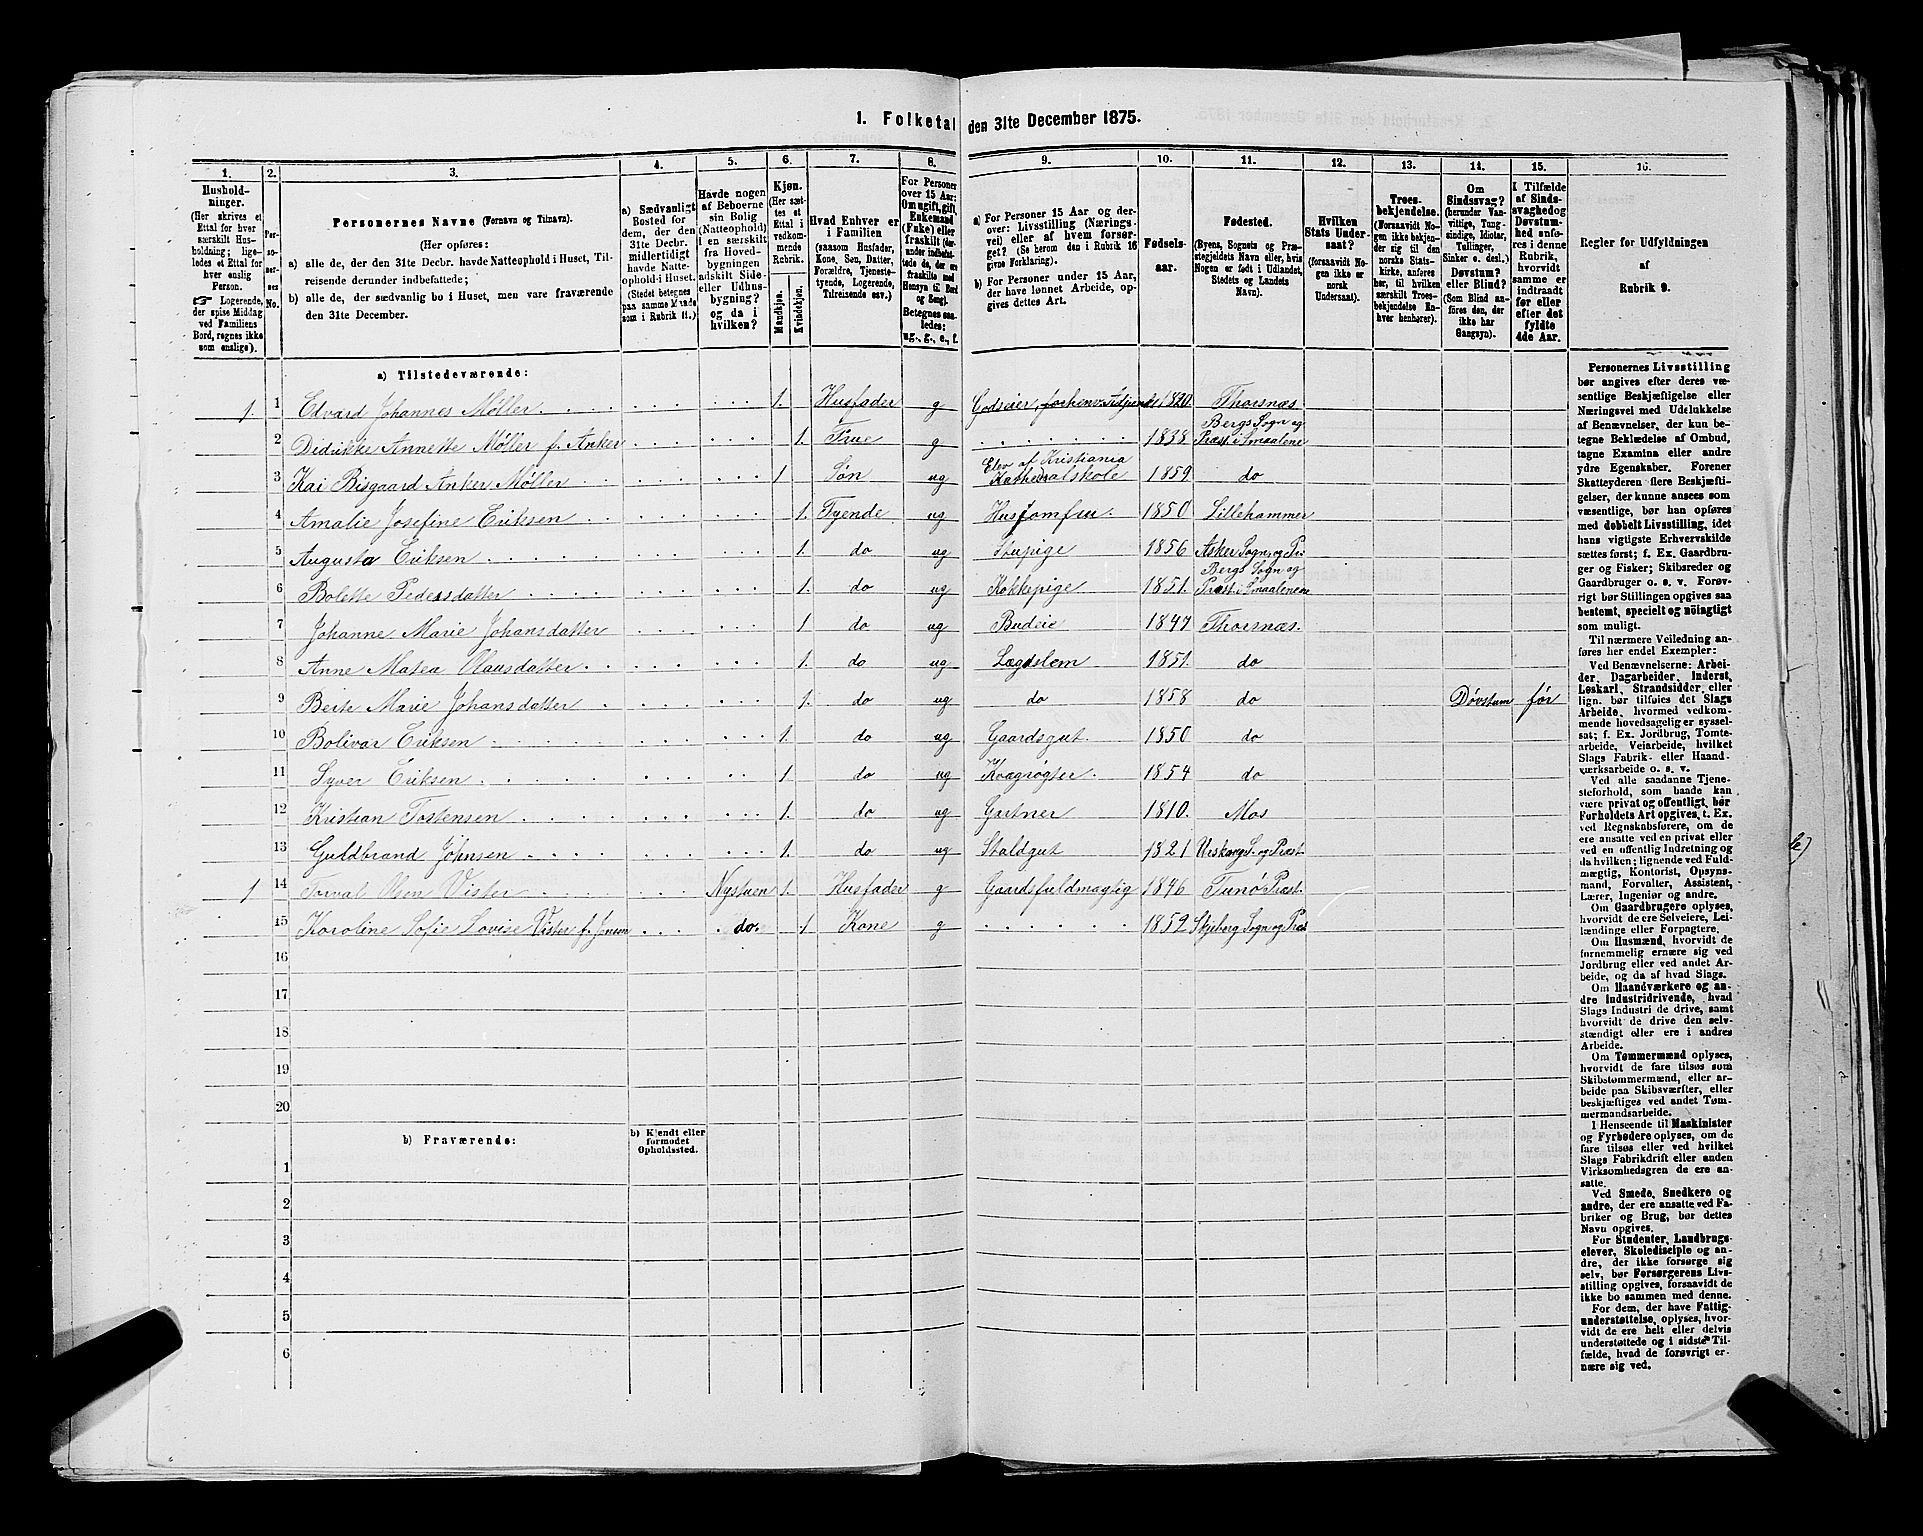 1. Folketal den 31te December 1875.
1.
2.
3.
4.
5.
6.
7.
8.
9.
10.
11.
12.
13.
14.
15.
16.
Hushold-
ninger.
(Her skrives et
Ettal for hver
særskilt Hus-
holdning; lige-
ledes et Ettal for
hver enslig
Person.
☞ Logerende,
der spise Middag
ved Familiens
Bord, regnes ikke
som enslige).
Per-
so-
ner-
nes
No.
Personernes Navne (Fornavn og Tilnavn).
(Her opføres:
a) alle de, der den 31te Decbr. havde Natteophold i Huset, Til-
reisende derunder indbefattede;
b) alle de, der sædvanlig bo i Huset, men vare fraværende
den 31te December.
a) Sædvanligt
Bosted for
dem, der den
31te Decbr.
midlertidigt
havde Natte-
ophold i Huset.
(Stedet betegnes
paa samme Maade
som i Rubrik 11.)
Havde nogen
af Beboerne
sin Bolig
(Natteophold)
i en særskilt
fra Hoved-
bygningen
adskilt Side-
eller Udhus-
bygning?
og da i
hvilken?
Kjøn.
(Her sæt-
tes et
Ettal i
vedkom-
mende
Rubrik.
Mandkjøn.
Kvindekjøn.
Hvad Enhver er
i Familien
(saasom Husfader,
Kone, Søn, Datter,
Forældre, Tjeneste-
tyende, Logerende,
Tilreisende osv.)
For Personer
over 15 Aar:
Om ugift, gift,
Enkemand
(Enke) eller
fraskilt (der-
under indbefat-
tede de, der ere
fraskilte med
Hensyn til Bord
og Seng).
Betegnes saa-
ledes:
ug., g., e., f.
a) For Personer 15 Aar og der-
over: Livsstilling (Nærings-
vei) eller af hvem forsør-
get? (Se herom den i Rubrik 16
givne Forklaring).
b) For Personer under 15 Aar,
der have lønnet Arbeide, op-
gives dettes Art.
Fødsels-
aar.
Fødested.
(Byens, Sognets og Præ-
stegjeldets Navn eller, hvis
Nogen er født i Udlandet,
Stedets og Landets
Navn).
Hvilken
Stats Under-
saat?
(forsaavidt No-
gen ikke er
norsk
Undersaat).
Troes-
bekjendelse.
(Forsaavidt No-
gen ikke bekjen-
der sig til den
norske Stats-
kirke, anføres
her, til hvilken
særskilt Troes-
bekjendelse En-
hver henhører).
Om
Sindssvag?
(herunder Van-
vittige, Tung-
sindige, Idioter,
Tullinger,
Sinker o. desl.)
Døvstum?
eller Blind?
(Som Blind an-
føres den, der
ikke har
Gangsyn).
I Tilfælde
af Sinds-
svaghed og
Døvstum-
hed anfø-
res i denne
Rubrik,
hvorvidt
samme er
indtraadt
før eller
efter det
fyldte
4de Aar.
Regler for Udfyldningen
af
Rubrik 9.
a) Tilstedeværende:
1. 1 Edvard Johannes Møller 1. Husfader g Godseier, forhenv. Adjunkt 1820 Thorsnæs
2 Didrikke Annette Møller f. Anker 1. Frue g 1838 Bergs Sogn og Præst. i Smaalene
3 Kai Bisgaard Anker Møller 1 Søn ug Elev af Kristiania Kathedralskole 1859 do
4 Amalie Josefine Eriksen 1. Tyende ug Husjomfru. 1850 Lillehammer
5 Augusta Eriksen 1. do ug Stupige 1856 Asker Sogn og Pr.
6 Bolette Pedersdatter 1. do ug Kokkepige 1851. Bergs Sogn og Præst. i Smaalenene
7 Johanne Marie Johansdatter 1 do ug Budeie 1847 Thorsnæs.
8 Anne Matea Olausdatter 1. do ug Lægdslem 1851. do
9 Berte Marie Johansdatter 1. do ug do 1858 do Døvstum før
10 Bolivar Eriksen 1. do ug Gaardsgut. 1850 do
11 Syver Eriksen 1. do ug Kvægrøgter. 1854 do
12 Kristian Tostensen 1. do ug Gartner 1810. Mos
13 Guldbrand Johnsen 1. do ug Staldgut 1821 Urskougs S. og Præst.
1 14 Torval Olsen Vister Nystuen 1. Husfader g Gaardsfuldmægtig 1846 Tunø Præst.
15 Karoline Sofie Lovise Vister f. Jensen do. 1 Kone g 1852 Skjeberg Sogn og Præst
16
17
18
19
20
b) Fraværende:
b) Kjendt eller
formodet
Opholdssted.
1
2
3
4
5
6
Personernes Livsstilling
bør angives efter deres væ-
sentlige Beskjæftigelse eller
Næringsvei med Udelukkelse
af Benævnelser, der kun be-
tegne Beklædelse af Ombud,
tagne Examina eller andre
ydre Egenskaber. Forener
Skatteyderen flere Beskjæfti-
gelser, der kunne ansees som
væsentlige, bør han opføres
med dobbelt Livsstilling, idet
hans vigtigste Erhvervskilde
sættes først; f. Ex. Gaardbru-
ger og Fisker; Skibsreder og
Gaardbruger o. s. v. Forøv-
rigt bør Stillingen opgives saa
bestemt, specielt og nöiagtigt
som muligt.
Til nærmere Veiledning an-
føres her endel Exempler:
Ved Benævnelserne: Arbei-
der, Dagarbeider, Inderst,
Løskarl, Strandsidder, eller
lign. bør tilføies det Slags
Arbeide, hvormed vedkom-
mende hovedsagelig er syssel-
sat; f. Ex. Jordbrug, Tomte-
arbeide, Veiarbeide, hvilket
Slags Fabrik- eller Haand-
værksarbeide o. s. v.
Ved alle saadanne Tjene-
steforhold, som baade kan
være privat og offentligt, bør
Forholdets Art opgives, t. Ex.
ved Regnskabsførere, om de
ere ansatte ved en privat eller
ved en offentlig Indretning og
da hvilken; lignende ved Fuld-
mægtig, Kontorist, Opsyns-
mand, Forvalter, Assistent,
Lærer, Ingeniør og andre.
Om Gaardbrugere oplyses,
hvorvidt de ere Selveiere, Lei-
lændinge eller Forpagtere.
Om Husmænd, hvorvidt de
fornemmelig ernære sig ved
Jordbrug eller ved andet Ar-
beide, og da af hvad Slags.
Om Haandværkere og an-
dre Industridrivende, hvad
Slags Industri de drive, samt
hvorvidt de drive den selv-
stændigt eller ere i andres
Arbeide.
Om Tømmermænd oplyses,
hvorvidt de fare tilsøs som
Skibstømmermænd, eller ar-
beide paa Skibsværfter, eller
beskjæftiges ved andet Tøm-
mermandsarbeide.
I Henseende til Maskinister
og Fyrbødere oplyses, om de
fare tilsøs eller ved hvilket
Slags Fabrikdrift eller anden
Virksomhedsgren de ere an-
satte.
Ved Smede, Snedkere og
andre, der ere ansatte ved Fa-
briker og Brug, bør dettes
Navn opgives.
For Studenter, Landbrugs-
elever, Skoledisciple og an-
dre, der ikke forsørge sig
selv, bør Forsørgerens Livs-
stilling opgives, forsaavidt de
ikke bo sammen med denne.
For dem, der have Fattig-
understøttelse, oplyses, hvor-
vidt de ere helt eller delvis
understøttede og i sidste Til-
fælde, hvad de forøvrigt er-
nære sig ved.